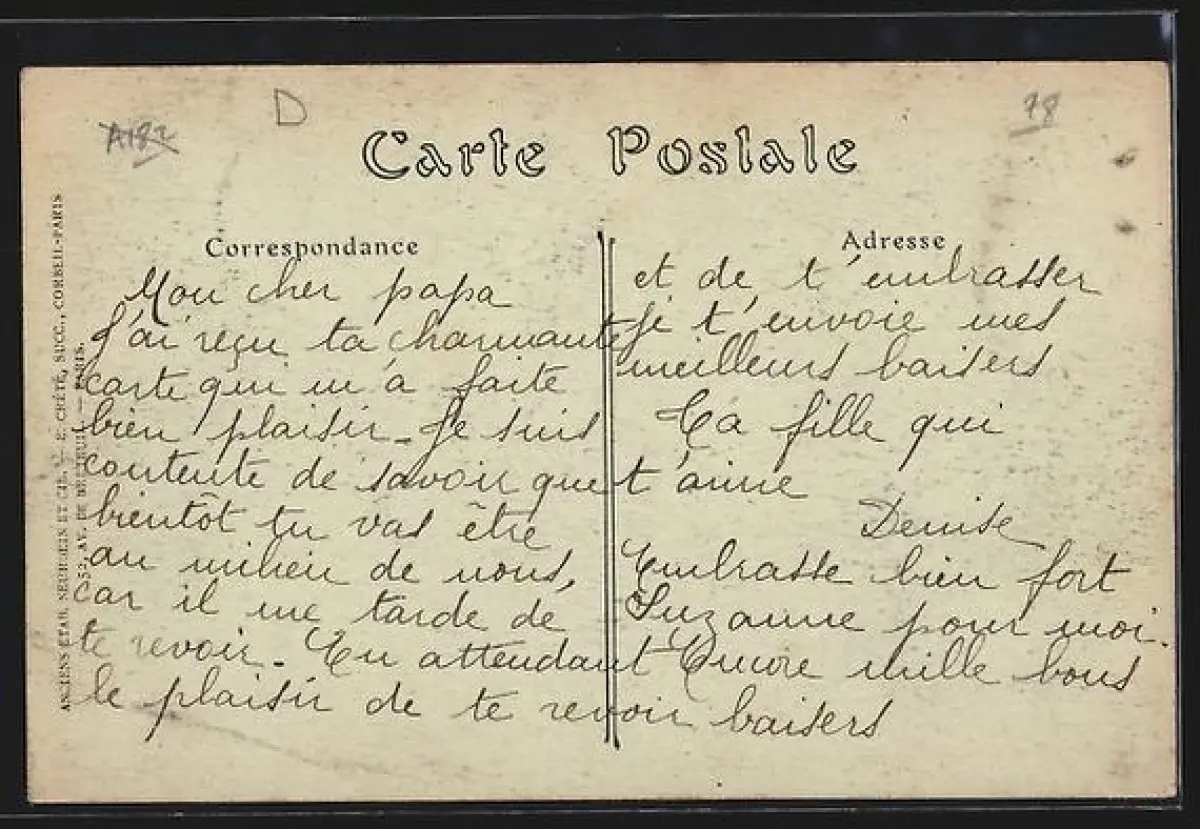 A182
D
78
Carte Postale
Correspondance
Mon cher papa
J'ai reçu ta charmante
carte qui m'a faite
bien plaisir. Je suis
contente de savoir que
bientôt tu vas être
au milieu de nous,
car il me tarde de
te revoir. En attendant
le plaisir de te revoir
Adresse
et de t'embrasser
je t'envoie mes
meilleurs baisers
Ta fille qui
t'aime
Denise
Embrasse bien fort
Suzanne pour moi.
Encore mille bons
baisers
ANCIENS ETAB. NEURDEIN ET CIE. — E. CRÉTÉ, SUCC., CORBEIL-PARIS
52, AV. DE BRETEUIL — PARIS.